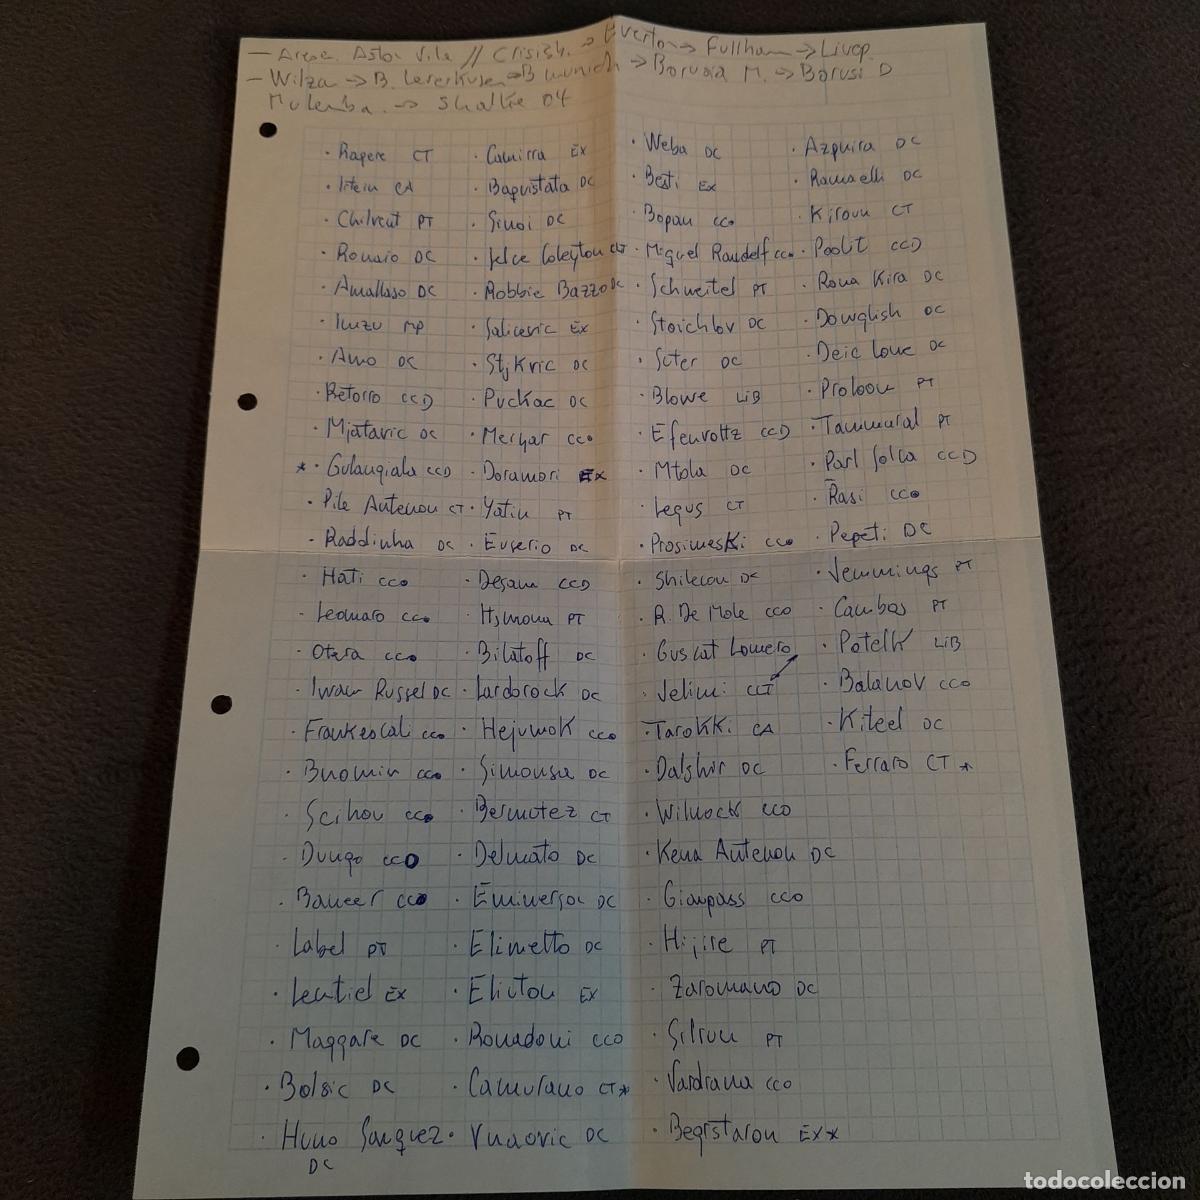 Aston Vila // → Everton → Fullham → Liverp.
- Wilza → B. Leverkusen → B munich → Borusia M. → Borusi D
Mulemba. → Shalke 04
· Rapere CT
· Itein CA
· Chilvert PT
· Ronsio DC
· Amallaso DC
· Inuzu MP
· Amo DC
· Retorro CCD
· Mjatavic DC
* · Gulanqiala CCD
· Pile Antenon CT
· Raddinha DC
· Hati CCO
· Leonaro CCO
· Otsra CCO
· Iwan Russel DC
· Frankescali CCO
· Bnomin CCO
· Scihou CCO
· Dungo CCO
· Baneer CCO
· Label PT
· Lentiel EX
· Maggare DC
· Bolsic DC
· Huno Sanquez DC
· Camirra EX
· Baquistata DC
· Sinoi DC
· Jelce Coleyton CLT
· Robbie Bazzo DC
· Salicevic EX
· Stjkvic DC
· Puckac DC
· Meryar CCO
· Doramori EX
· Yatin PT
· Euserio DC
· Desam CCD
· Hsmona PT
· Bilatoff DC
· Lardorock DC
· Hejumok CCO
· Simonsa DC
· Bermutez CT
· Delmato DC
· Eminerson DC
· Elimetto DC
· Elinton EX
· Ronadoni CCO
· Camurano CT *
· Vnaovic DC
· Weba DC
· Besti EX
· Bopan CCO
· Miguel Randelf CCO
· Schweitel PT
· Stoichlov DC
· Suter DC
· Blowe LIB
· Efenvoltz CCD
· Mtola DC
· Legus CT
· Prosimeski CCO
· Shilecon DC
· R. De Mole CCO
· Guscat Lomero
· Jelimi CLT
· Tarokki CA
· Dalshir DC
· Wilnock CCO
· Kena Antenon DC
· Gianpass CCO
· Hijire PT
· Zaromano DC
· Silron PT
· Vardrana CCO
· Begrstaron EX *
· Azpuira DC
· Ramaelli DC
· Kiroun CT
· Poolit CCD
· Rona Kira DC
· Dowglish DC
· Deic Loue DC
· Proloon PT
· Tammural PT
· Parl Solca CCD
· Rasi CCO
· Pepeti DC
· Jemmings PT
· Cambas PT
· Potelk LIB
· Balanov CCO
· Kiteel DC
· Ferraro CT *
todocoleccion